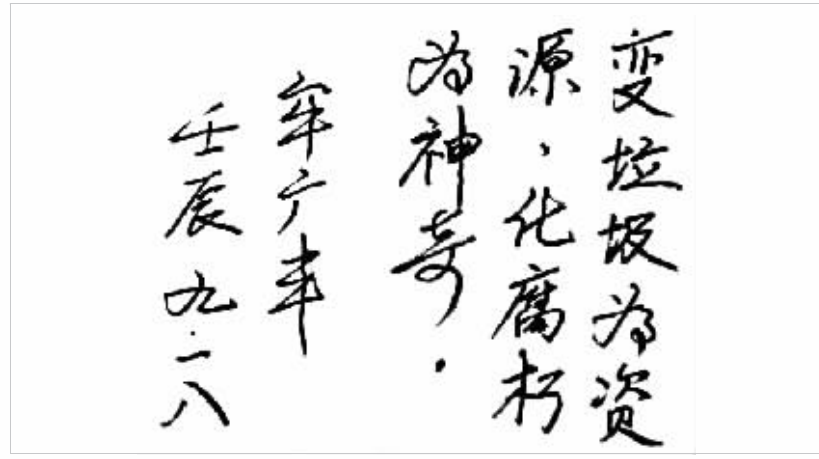 变垃圾为资
源、化腐朽
为神奇.
牟广丰
壬辰九.一八